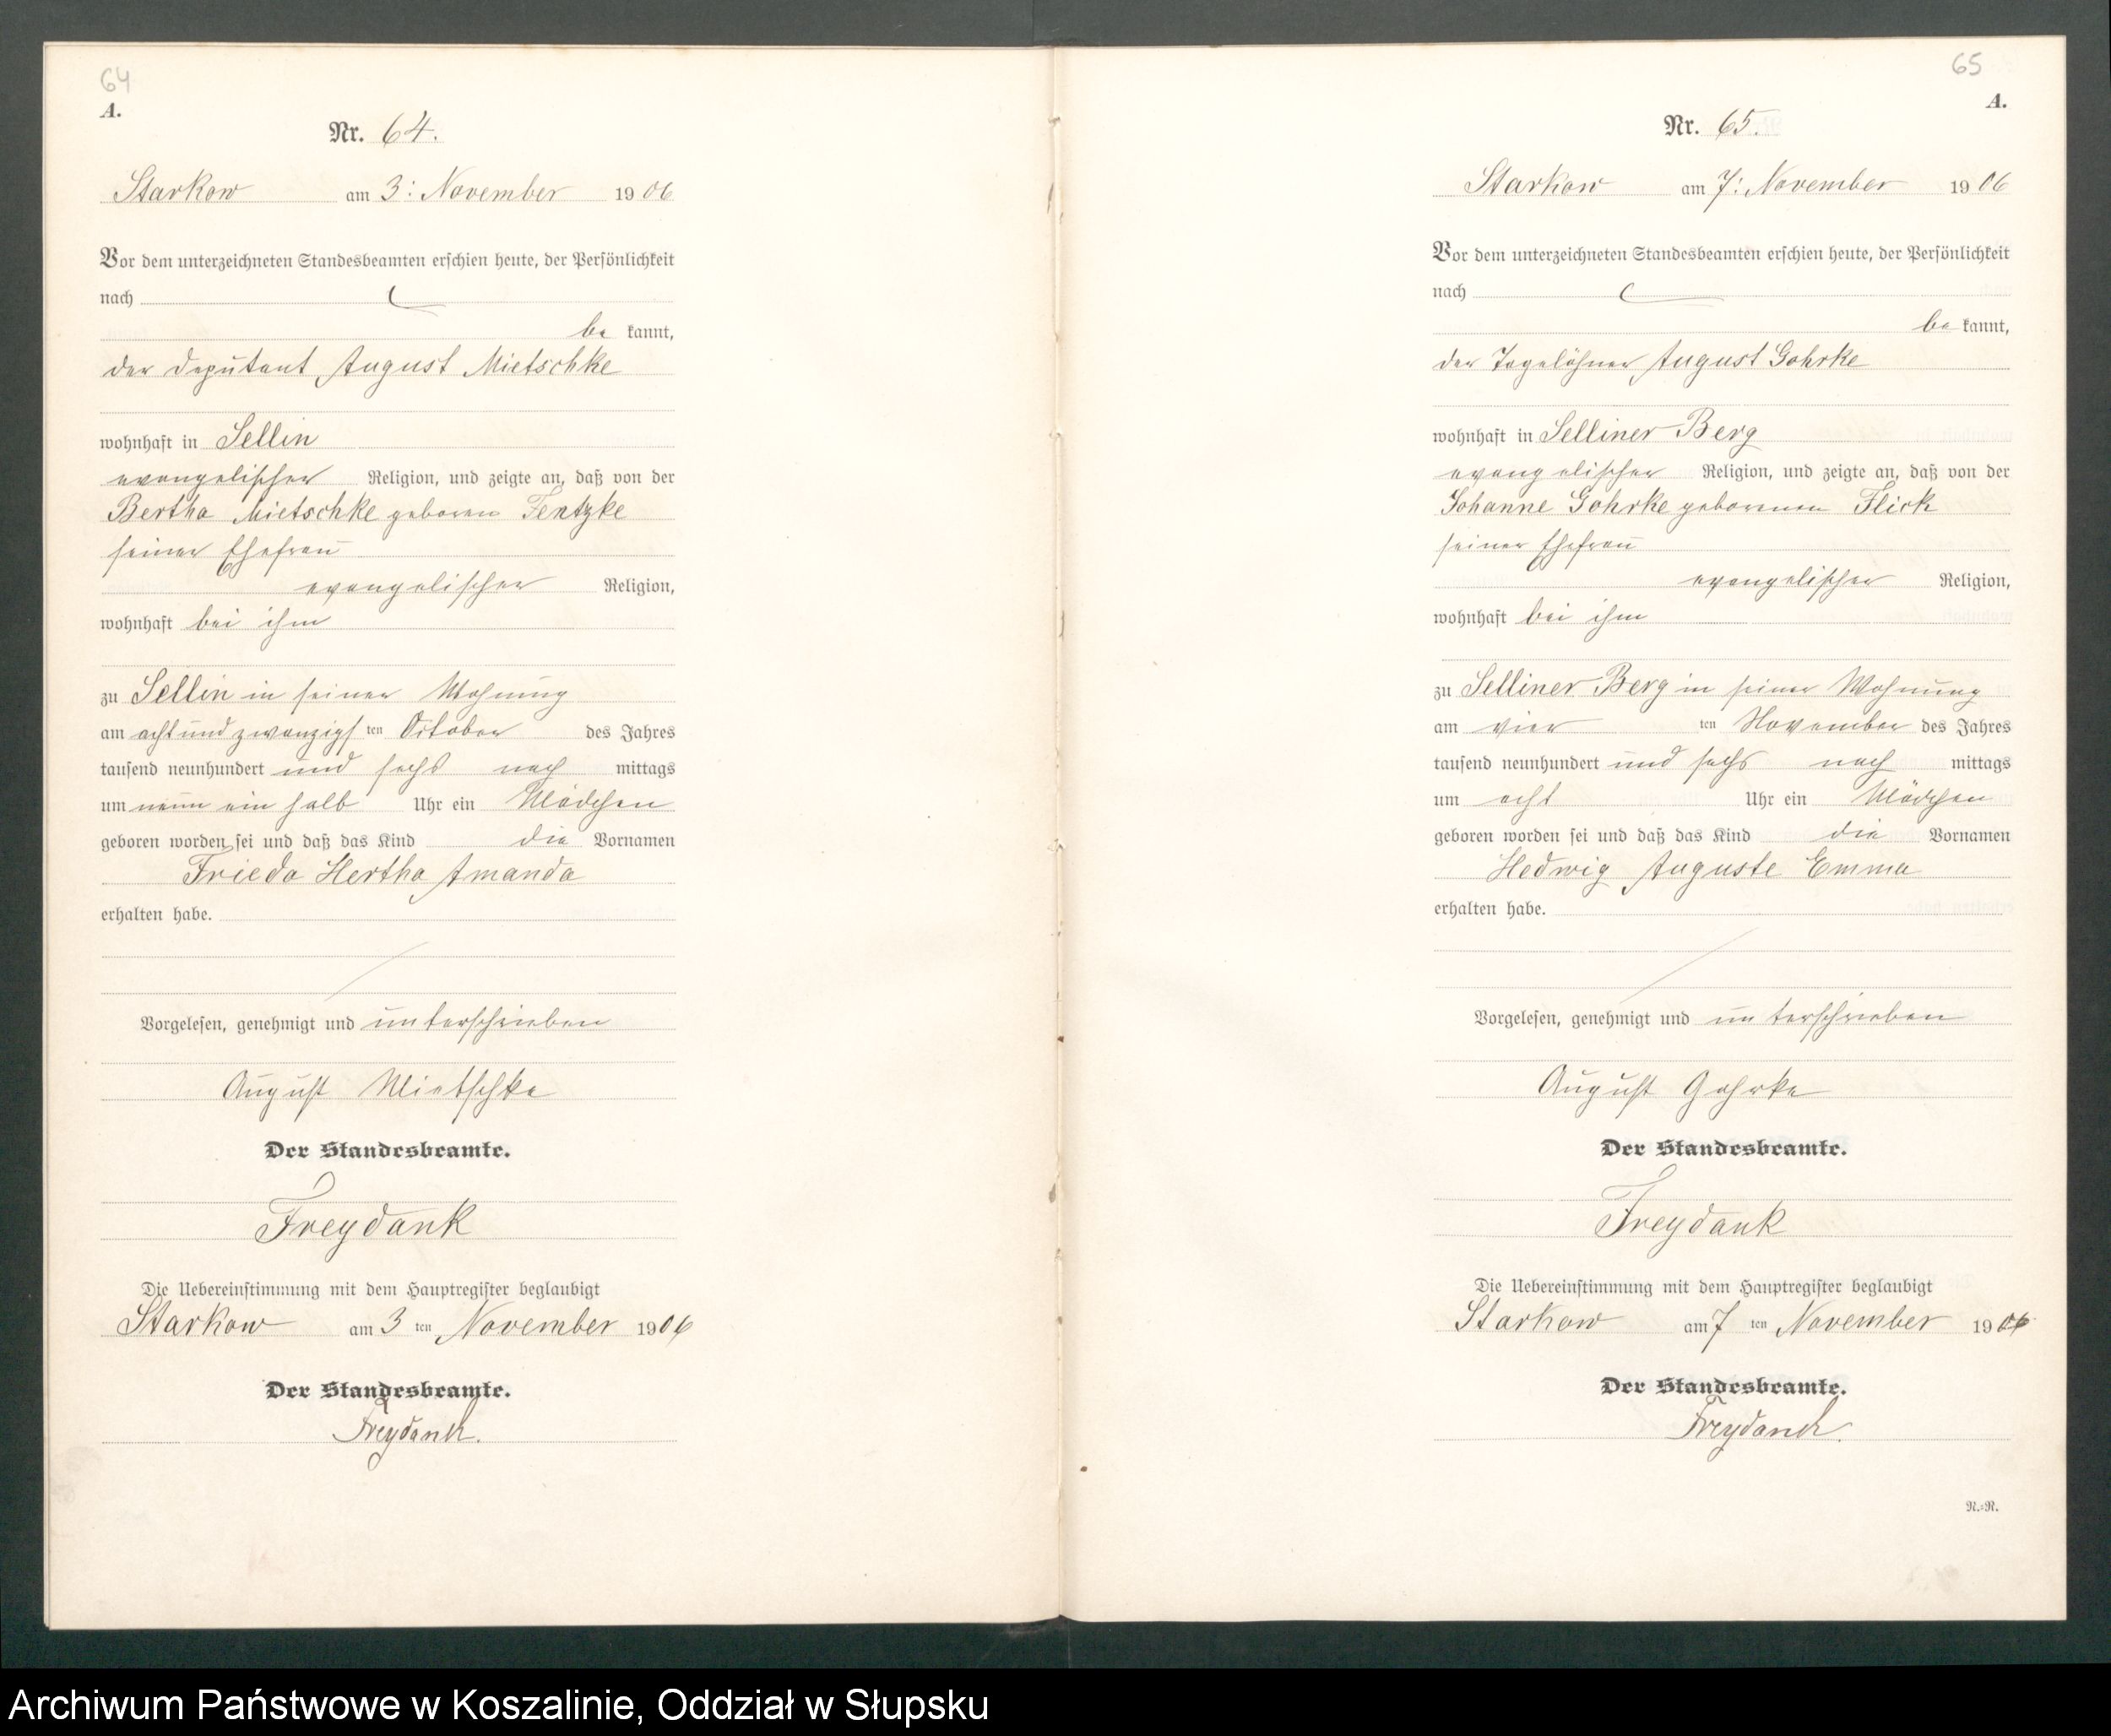 64
A.
Nr. 64.
Starkow am 3: November 1906
Vor dem unterzeichneten Standesbeamten erschien heute, der Persönlichkeit
nach
be kannt,
der Deputant August Mietschke
wohnhaft in Sellin
evangelischer Religion, und zeigte an, daß von der
Bertha Mietschke geboren Fentzke
seiner Ehefrau
evangelischer Religion,
wohnhaft bei ihm
zu Sellin in seiner Wohnung
am acht und zwanzigsten October des Jahres
tausend neunhundert und sechs nach mittags
um neun ein halb Uhr ein Mädchen
geboren worden sei und daß das Kind die Vornamen
Frieda Hertha Amanda
erhalten habe.
Vorgelesen, genehmigt und unterschrieben
August Mietschke
Der Standesbeamte.
Freydank
Die Uebereinstimmung mit dem Hauptregister beglaubigt
Starkow am 3 ten November 1906
Der Standesbeamte.
Freydank.
65
A.
Nr. 65.
Starkow am 7: November 1906
Vor dem unterzeichneten Standesbeamten erschien heute, der Persönlichkeit
nach
be kannt,
der Tagelöhner August Gohrke
wohnhaft in Selliner Berg
evangelischer Religion, und zeigte an, daß von der
Johanne Gohrke geborenen Flick
seiner Ehefrau
evangelischer Religion,
wohnhaft bei ihm
zu Selliner Berg in seiner Wohnung
am vier ten November des Jahres
tausend neunhundert und sechs nach mittags
um acht Uhr ein Mädchen
geboren worden sei und daß das Kind die Vornamen
Hedwig Auguste Emma
erhalten habe.
Vorgelesen, genehmigt und unterschrieben
August Gohrke
Der Standesbeamte.
Freydank
Die Uebereinstimmung mit dem Hauptregister beglaubigt
Starkow am 7 ten November 1906
Der Standesbeamte.
Freydank.
R.=R.
Archiwum Państwowe w Koszalinie, Oddział w Słupsku